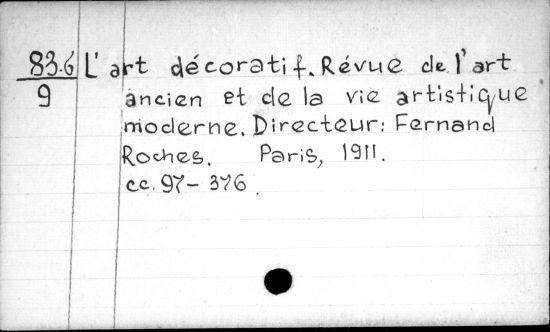 83.6 L'art décoratif. Révue de l'art
9 ancien et de la vie artistique
moderne. Directeur: Fernand
Roches. Paris, 1911.
cc. 97-376.